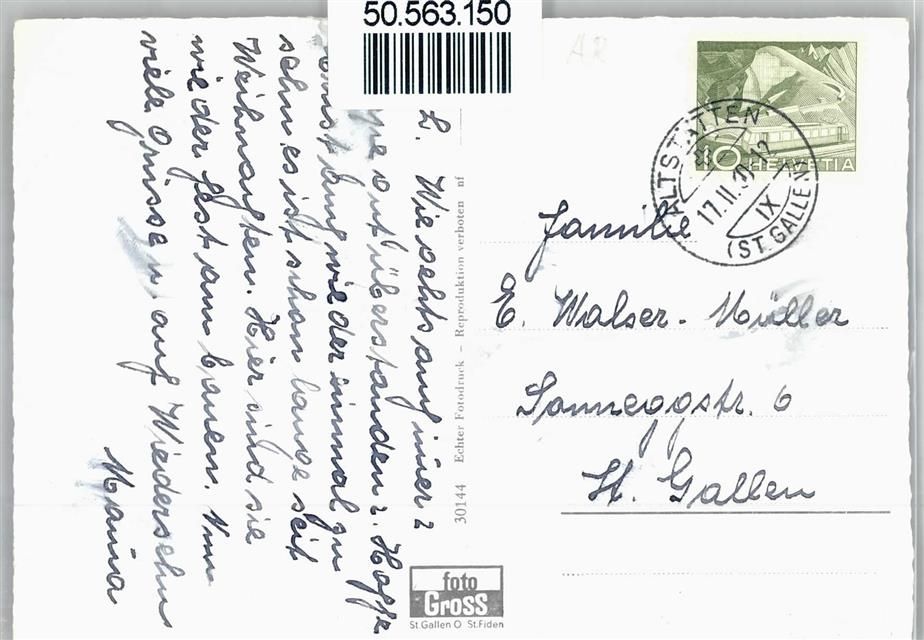 50.563.150
AR
10 HELVETIA
ALTSTÄTTEN
17.11.
12
IX
(ST. GALLEN)
L. Wie gehts auf immer?
gut überstanden? Hoffe
Euch wieder immal zu
sehn es ist schon lange seit
Weihnachten. Hier sind sie
wieder fest am bauen. Nun
viele Grüsse u. auf Wiedersehn
30144 Echter Fotodruck – Reproduktion verboten nf
Familie
E. Walser-Müller
Sonneggstr. 6
St. Gallen
foto
Gross
St Gallen O St.Fiden